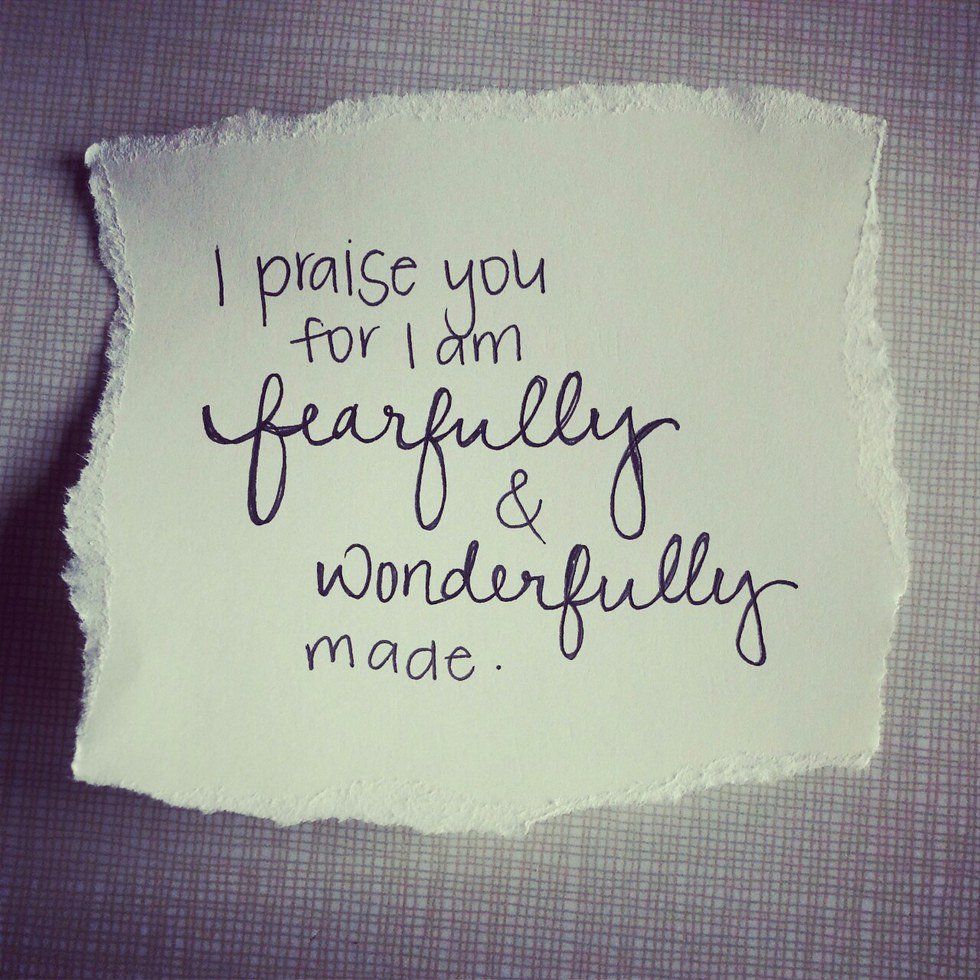 I praise you
for I am
fearfully
&
wonderfully
made.